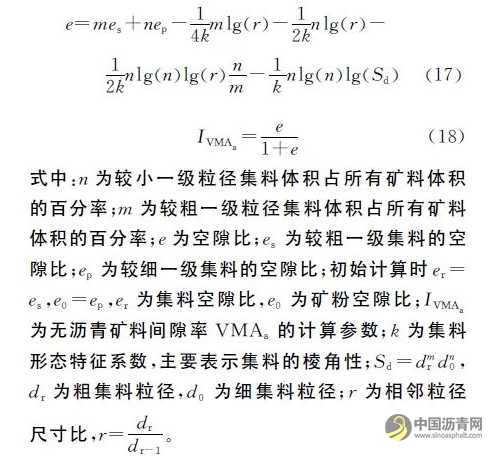 e=me_s+ne_p-\frac{1}{4k}mlg(r)-\frac{1}{2k}nlg(r)-
\frac{1}{2k}nlg(n)lg(r)\frac{n}{m}-\frac{1}{k}nlg(n)lg(S_d) (17)
I_{VMA_a}=\frac{e}{1+e} (18)
式中:n 为较小一级粒径集料体积占所有矿料体积
的百分率;m 为较粗一级粒径集料体积占所有矿料
体积的百分率;e 为空隙比;e_s 为较粗一级集料的空
隙比;e_p 为较细一级集料的空隙比;初始计算时 e_r=
e_s,e_0=e_p,e_r 为集料空隙比,e_0 为矿粉空隙比;I_{VMA_a}
为无沥青矿料间隙率 VMA_a 的计算参数;k 为集料
形态特征系数,主要表示集料的棱角性;S_d=d_r^m d_0^n,
d_r 为粗集料粒径,d_0 为细集料粒径;r 为相邻粒径
尺寸比,r=\frac{d_r}{d_{r-1}}。
中国沥青网
www.sinoasphalt.com